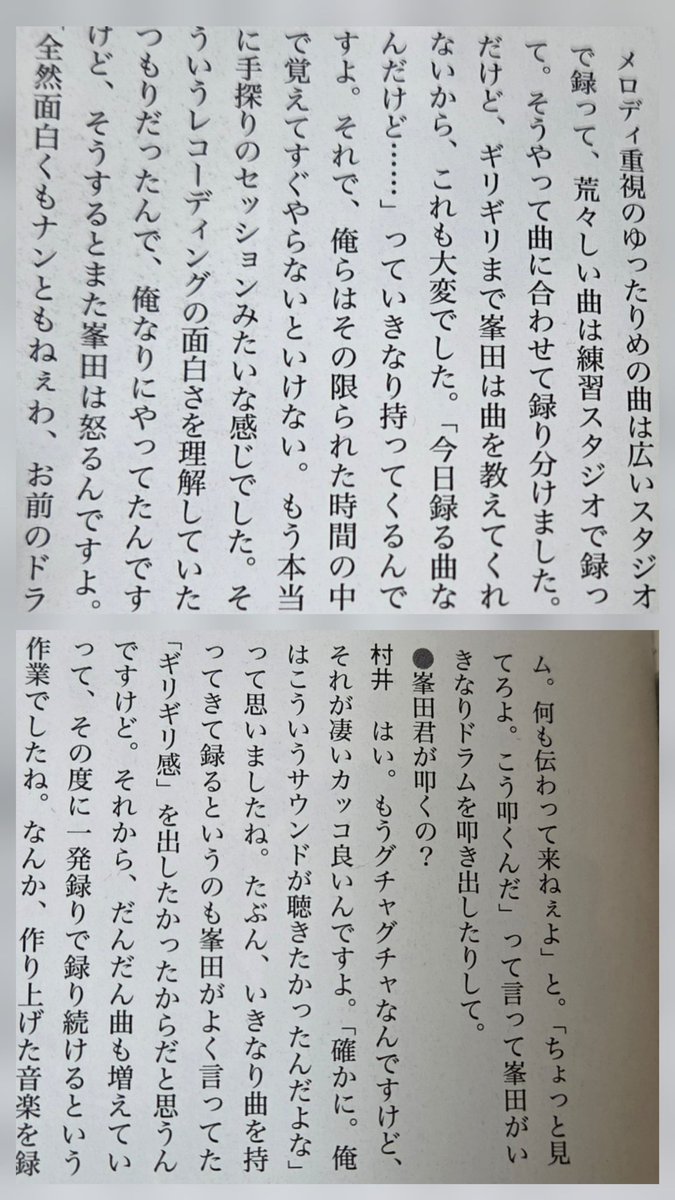 メロディ重視のゆったりめの曲は広いスタジオ
で録って、荒々しい曲は練習スタジオで録っ
て。そうやって曲に合わせて録り分けました。
だけど、ギリギリまで峯田は曲を教えてくれ
ないから、これも大変でした。「今日録る曲な
んだけど……」っていきなり持ってくるんで
すよ。それで、俺らはその限られた時間の中
で覚えてすぐやらないといけない。もう本当
に手探りのセッションみたいな感じでした。そ
ういうレコーディングの面白さを理解していた
つもりだったんで、俺なりにやってたんです
けど、そうするとまた峯田は怒るんですよ。
「全然面白くもナンともねぇわ、お前のドラ
ム。何も伝わって来ねぇよ」と。「ちょっと見
てろよ。こう叩くんだ」って言って峯田がい
きなりドラムを叩き出したりして。
●峯田君が叩くの？
村井　はい。もうグチャグチャなんですけど、
それが凄いカッコ良いんですよ。「確かに。俺
はこういうサウンドが聴きたかったんだよな」
って思いましたね。たぶん、いきなり曲を持
ってきて録るというのも峯田がよく言ってた
「ギリギリ感」を出したかったからだと思うん
ですけど。それから、だんだん曲も増えてい
って、その度に一発録りで録り続けるという
作業でしたね。なんか、作り上げた音楽を録